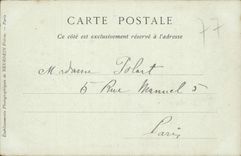 CARTE POSTALE
Ce côté est exclusivement réservé à l'adresse
77
Madame
6 Rue Manuel 5
Paris
Etablissements Photographiques de NEURDEIN Frères. - Paris